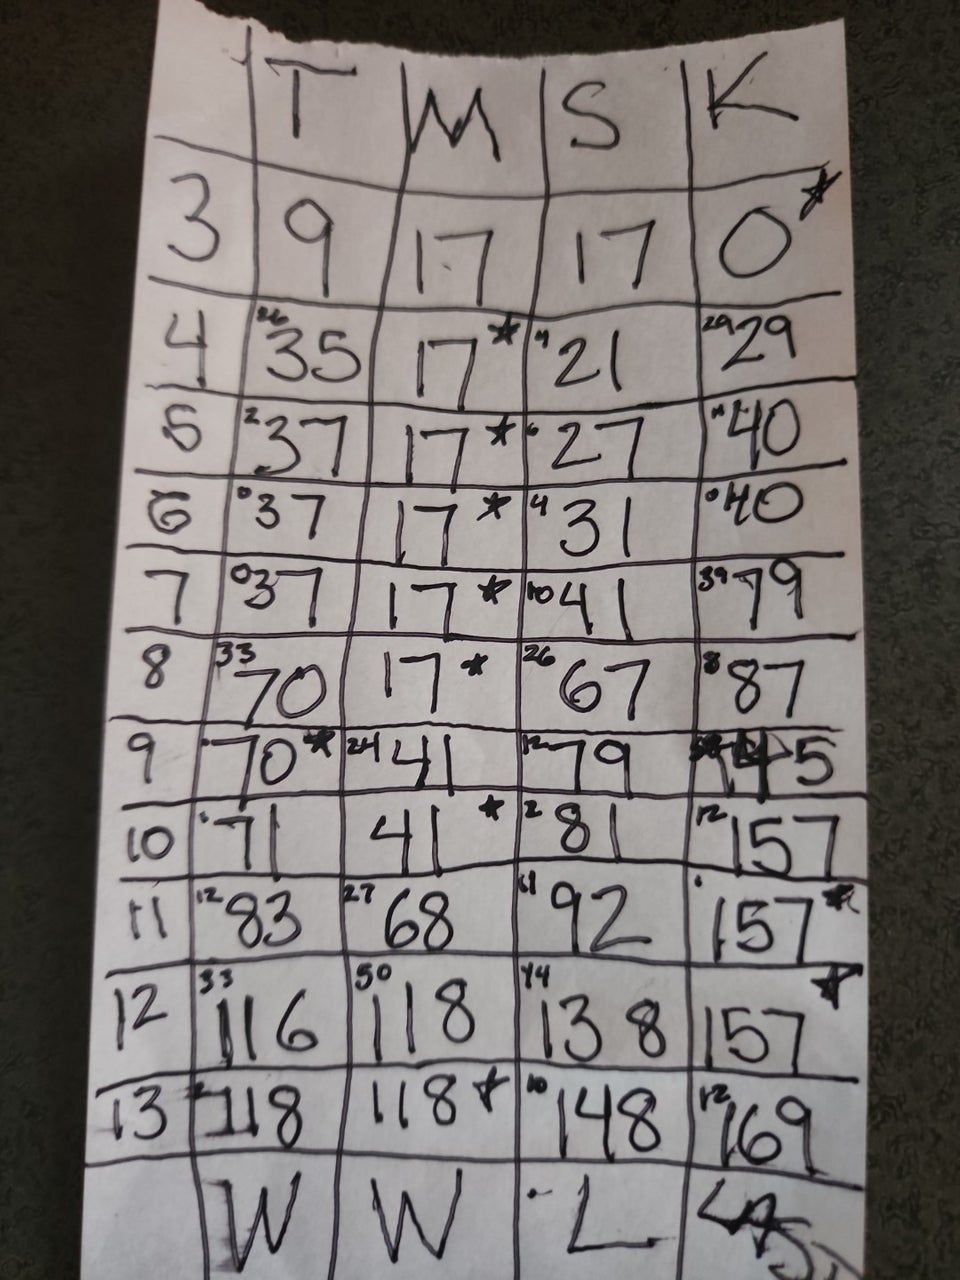 T M S K
3 9 17 17 0 ★
4 26 35 17 ★ 4 21 29 29
5 2 37 17 ★ 6 27 11 40
6 0 37 17 ★ 4 31 0 40
7 0 37 17 ★ 10 41 39 79
8 33 70 17 ★ 26 67 8 87
9 70 ★ 24 41 12 79 145
10 1 71 41 ★ 2 81 12 157
11 12 83 27 68 11 92 157 ★
12 33 116 50 118 44 138 157 ★
13 2 118 118 ★ 10 148 12 169
W W L